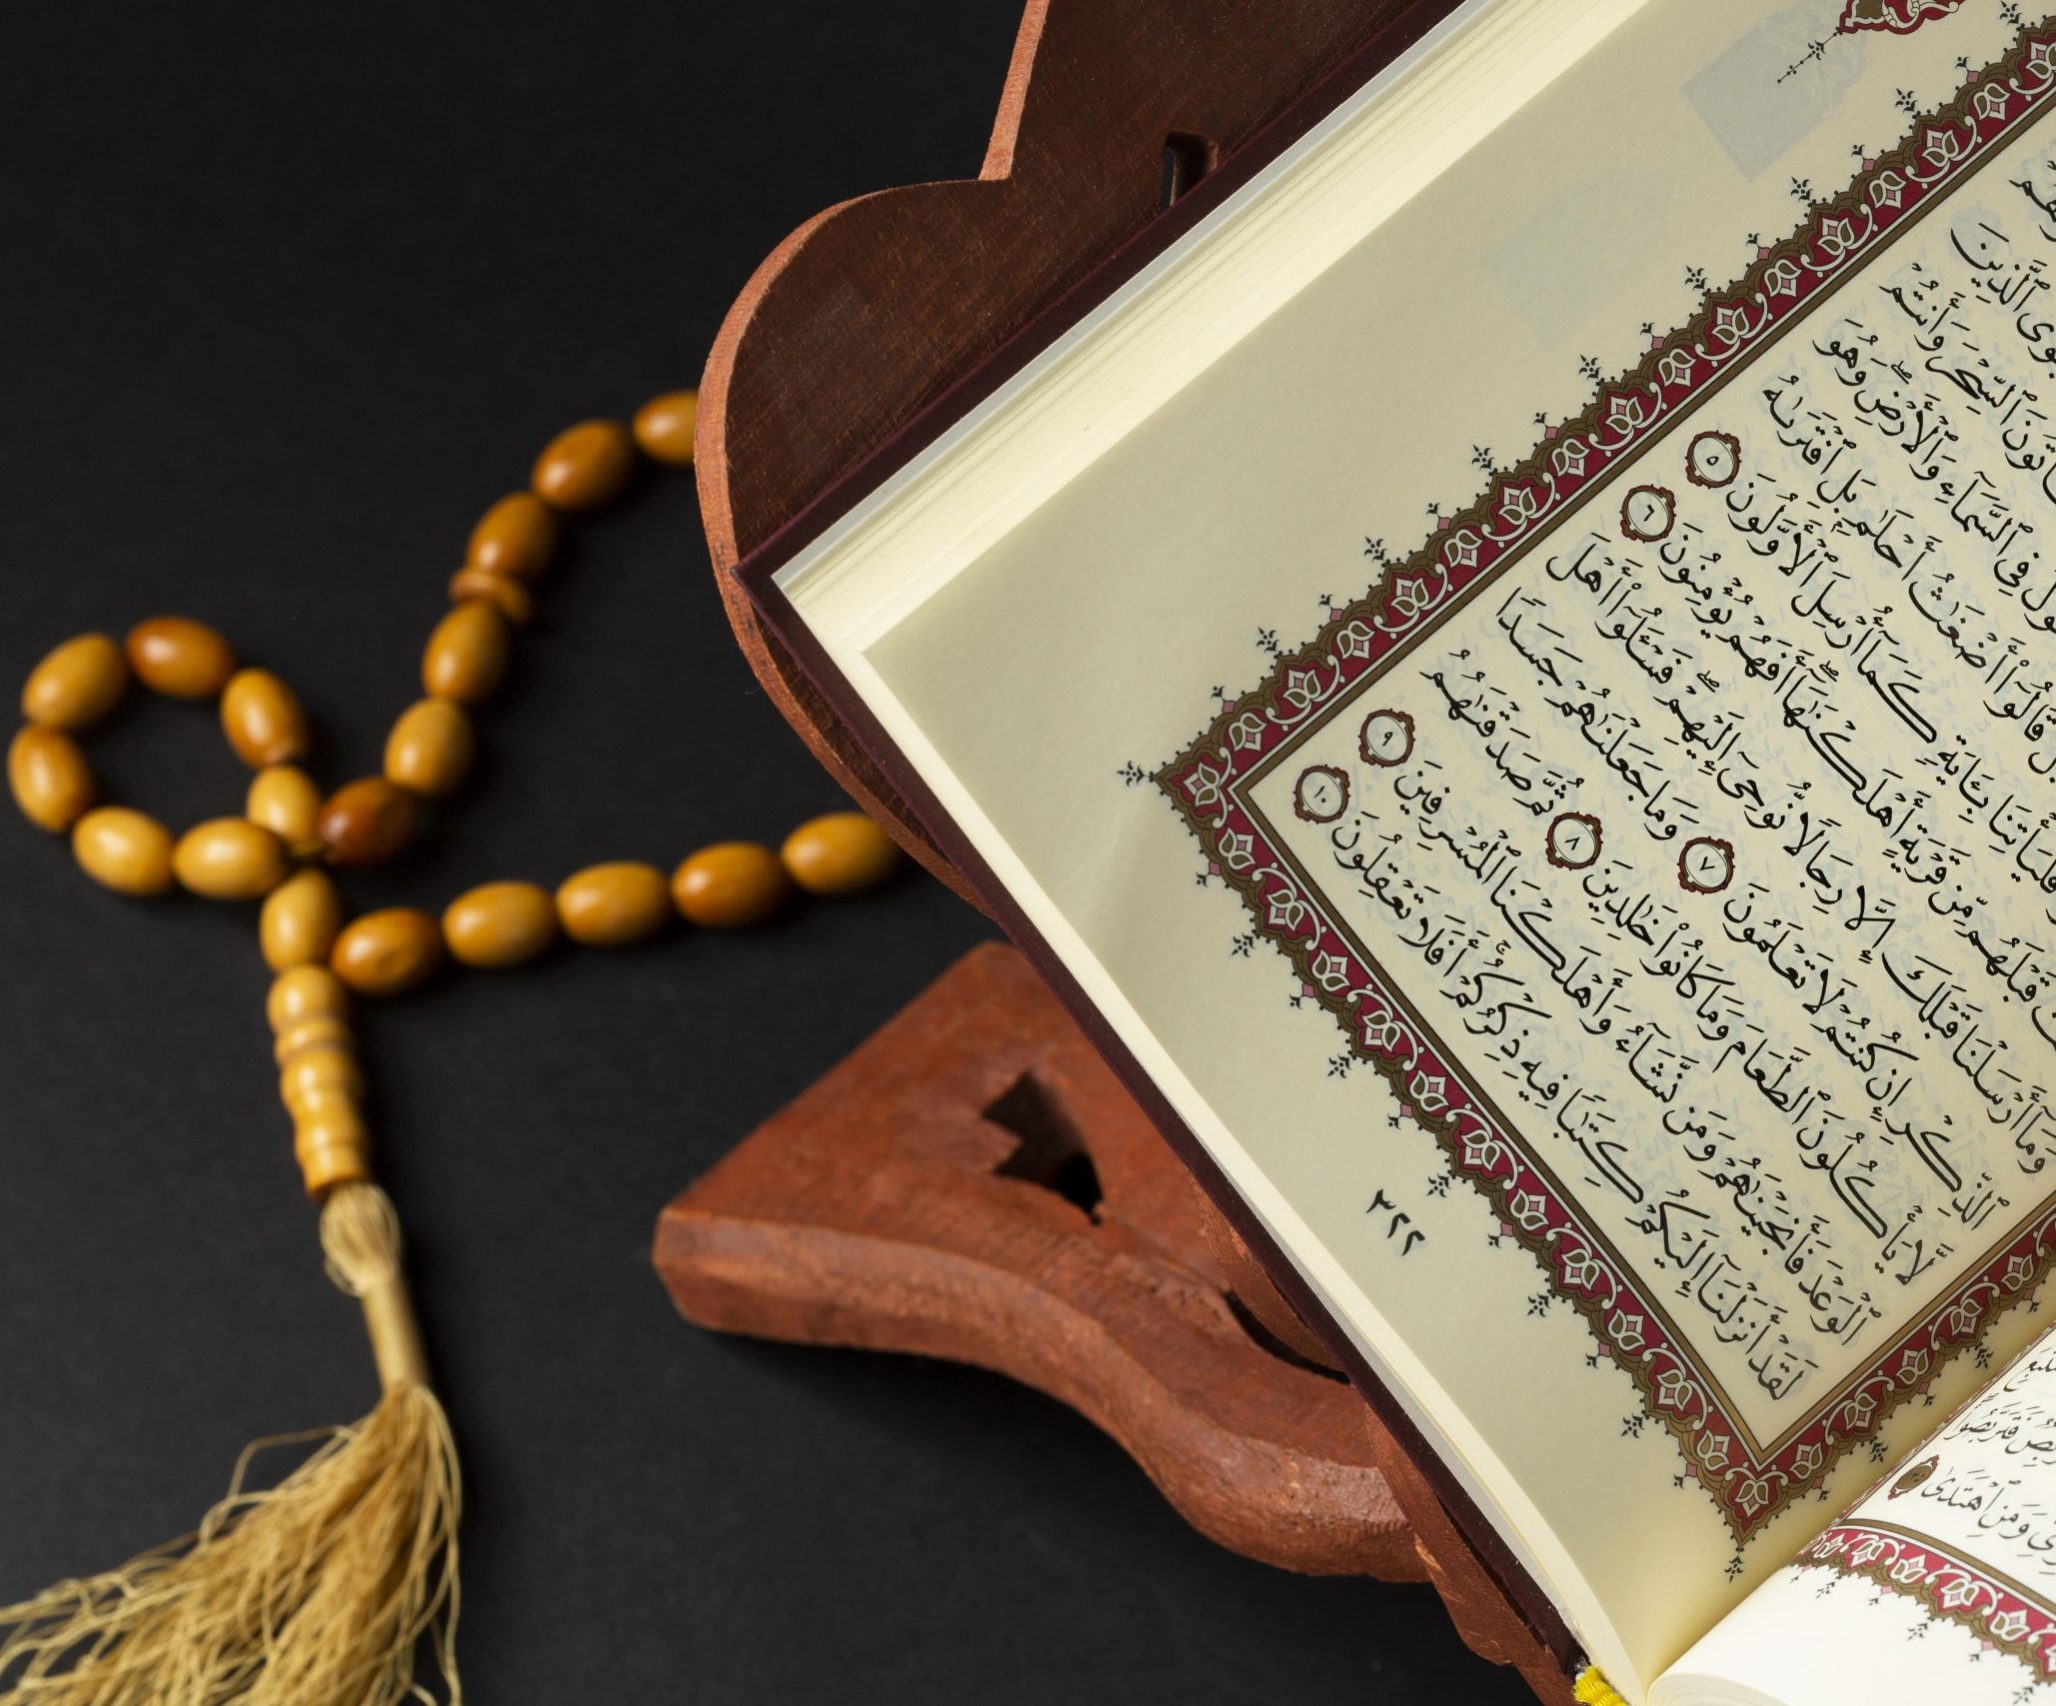 ٱلَّذِينَ
ٱلسِّحْرَ وَأَنتُمْ
فِى ٱلسَّمَآءِ وَٱلْأَرْضِۖ وَهُوَ
قَالُوٓا۟ أَضْغَٰثُ أَحْلَٰمٍۭ بَلِ ٱفْتَرَىٰهُ
فَلْيَأْتِنَا بِـَٔايَةٍ كَمَآ أُرْسِلَ ٱلْأَوَّلُونَ ٥
قَبْلَهُم مِّن قَرْيَةٍ أَهْلَكْنَٰهَآۖ أَفَهُمْ يُؤْمِنُونَ ٦
وَمَآ أَرْسَلْنَا قَبْلَكَ إِلَّا رِجَالًا نُّوحِىٓ إِلَيْهِمْۖ فَسْـَٔلُوٓا۟ أَهْلَ
ٱلذِّكْرِ إِن كُنتُمْ لَا تَعْلَمُونَ ٧ وَمَا جَعَلْنَٰهُمْ جَسَدًا
لَّا يَأْكُلُونَ ٱلطَّعَامَ وَمَا كَانُوا۟ خَٰلِدِينَ ٨ ثُمَّ صَدَقْنَٰهُمُ
ٱلْوَعْدَ فَأَنجَيْنَٰهُمْ وَمَن نَّشَآءُ وَأَهْلَكْنَا ٱلْمُسْرِفِينَ ٩
لَقَدْ أَنزَلْنَآ إِلَيْكُمْ كِتَٰبًا فِيهِ ذِكْرُكُمْۖ أَفَلَا تَعْقِلُونَ ١٠
٣٢٢
فَتَرَبَّصُوا۟
وَمَنِ ٱهْتَدَىٰ